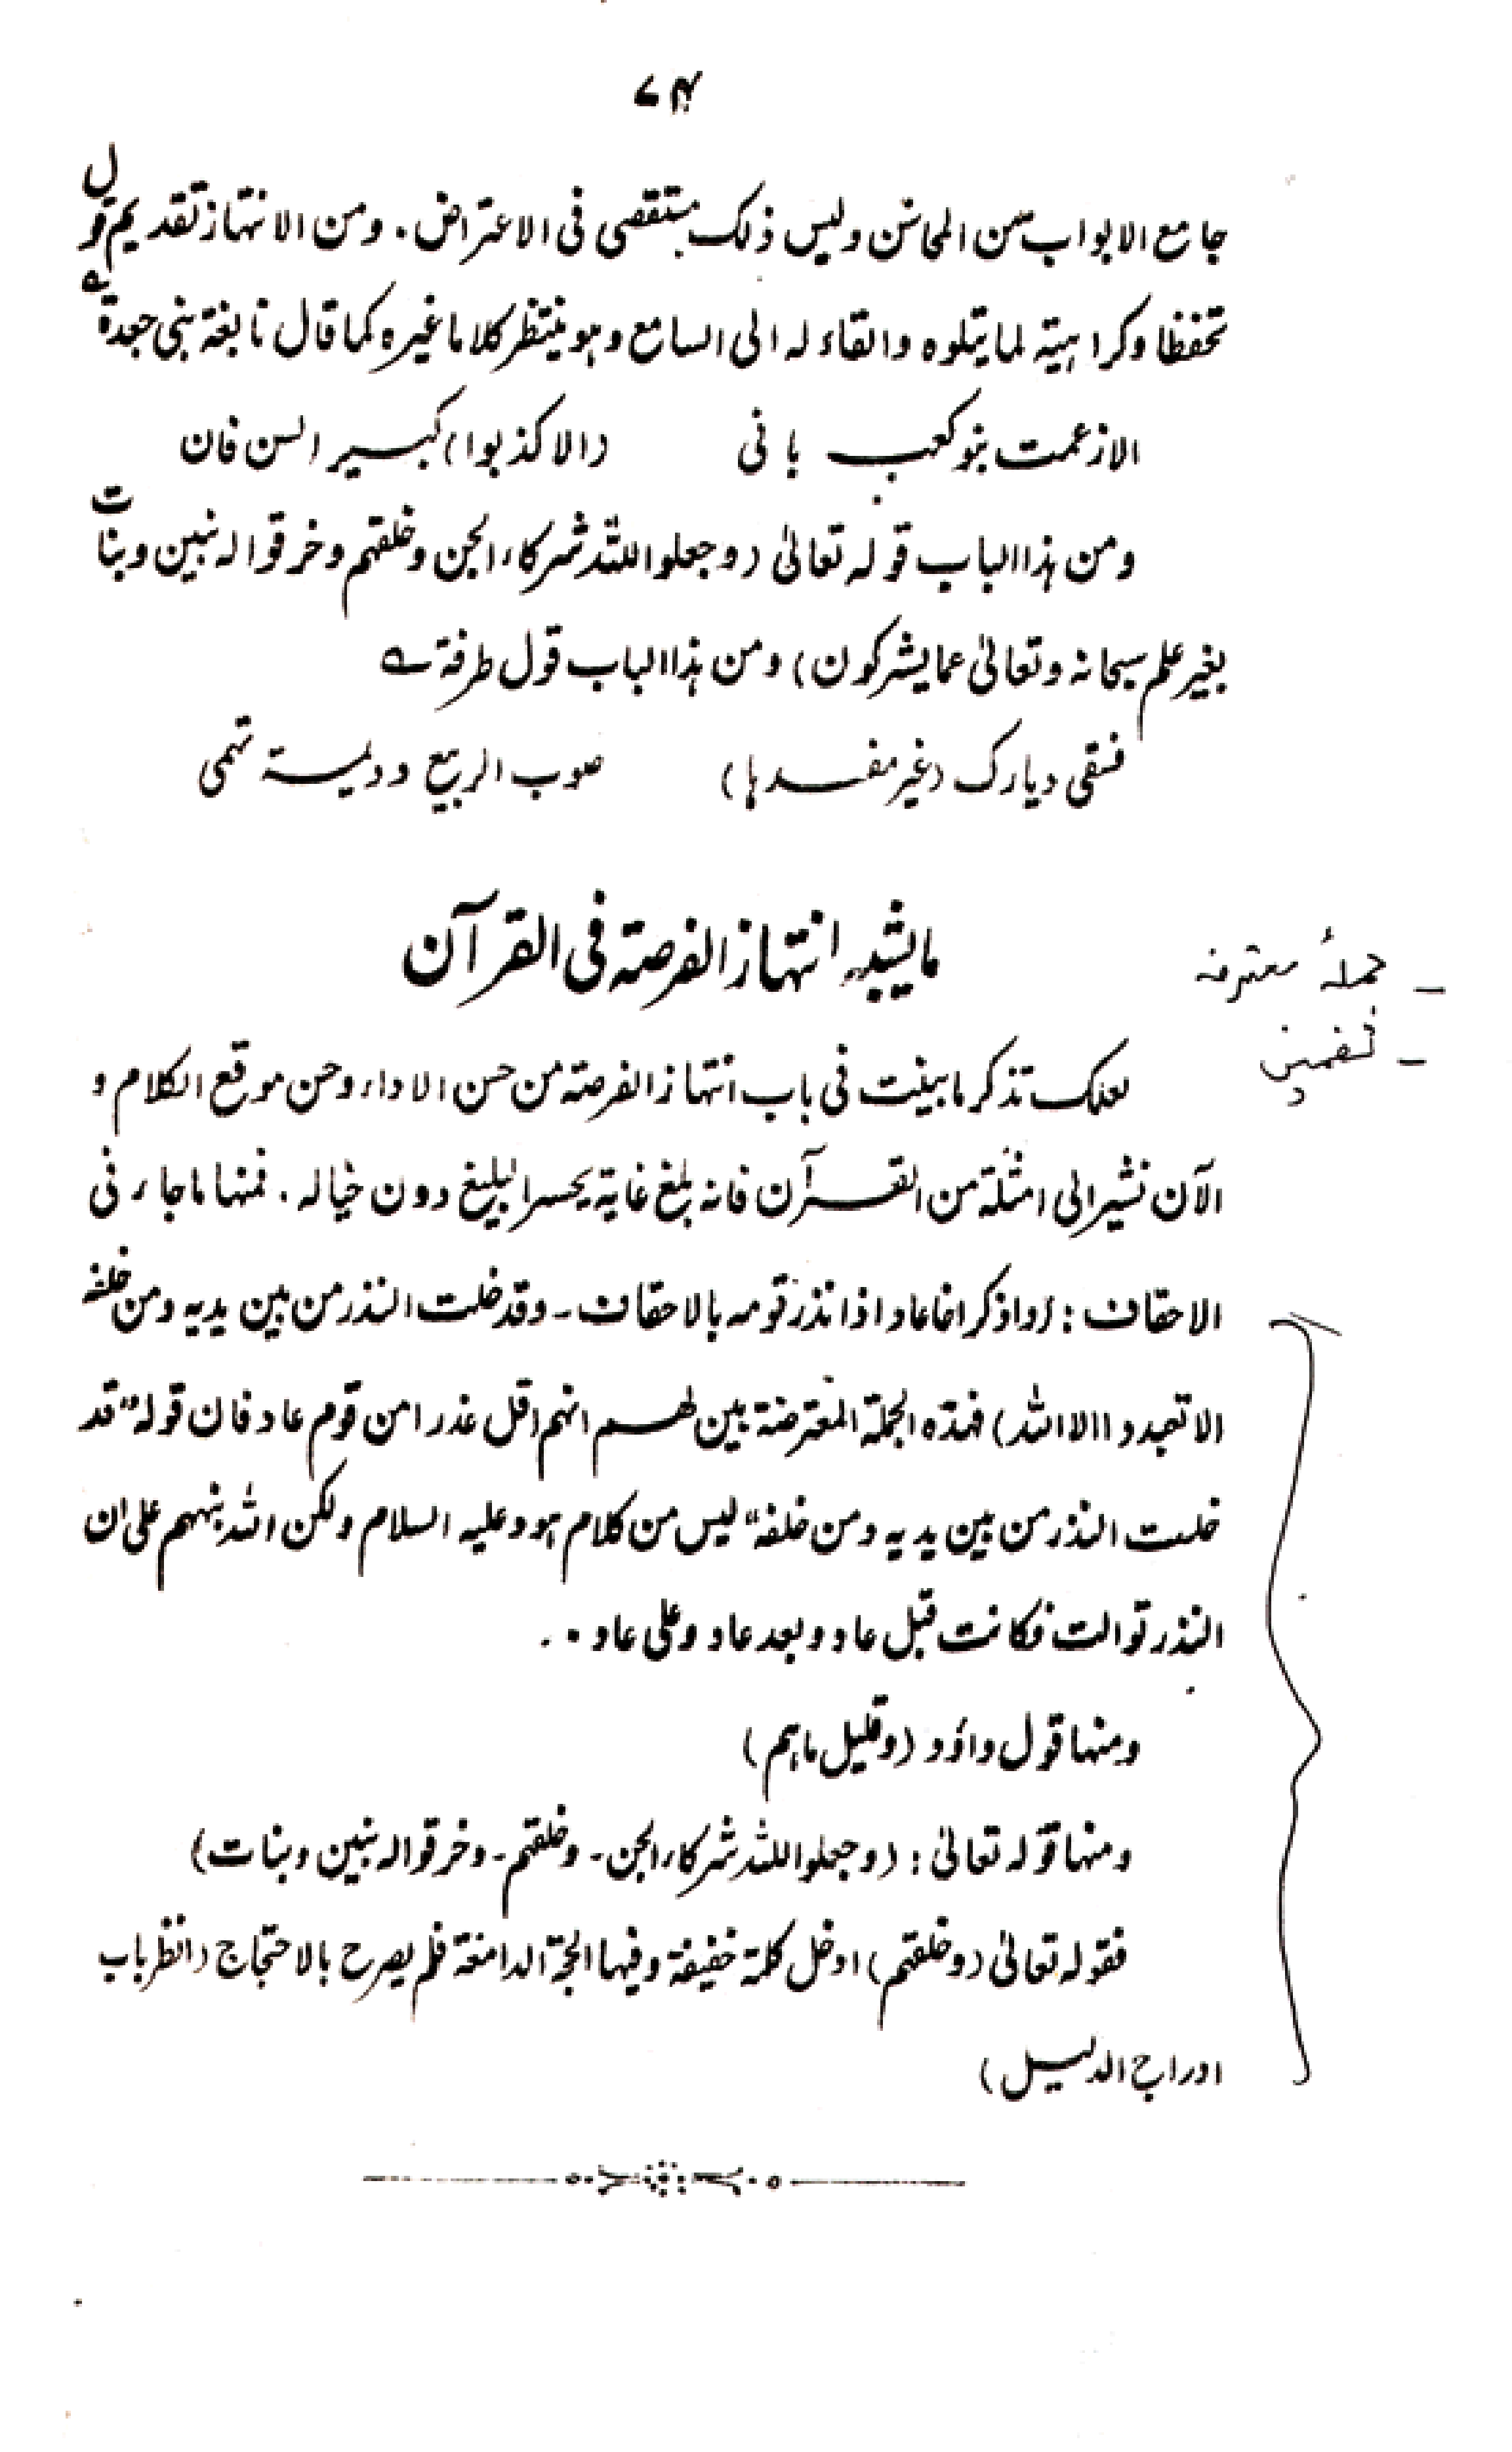 ۷۴
جامع الابواب من المحاسن وليس ذلك بمستقصى فى الاعتراض . ومن الانتهاز تقديم قول
تحفظا وكراهية لما يتلوه والقاء له الى السامع وهو ينتظر كلاما غيره كما قال نابغة بنى جعدة ؎
الا زعمت بنو كعب بانى (الا كذبوا) كبير السن فان
ومن هذا الباب قوله تعالىٰ (وجعلوا لله شركاء الجن وخلقهم وخرقوا له بنين وبنات
بغير علم سبحانه وتعالىٰ عما يشركون) ومن هذا الباب قول طرفة ؎
فسقى ديارك (غير مفسدها) صوب الربيع وديمة تهمى
ما يشبه انتهاز الفرصة فى القرآن
– جملۂ معترضہ
– تضمین
لعلك تذكر ما بينت فى باب انتهاز الفرصة من حسن الاداء وحسن موقع الكلام و
الآن نشير الى امثلة من القرآن فانه بلغ غاية يحسر البليغ دون خياله . فمنها ما جاء فى
الاحقاف : (واذكر اخا عاد اذ انذر قومه بالاحقاف - وقد خلت النذر من بين يديه ومن خلفه
الا تعبدوا الا الله) فهذه الجملة المعترضة بين لهم انهم اقل عذرا من قوم عاد فان قوله "قد
خلت النذر من بين يديه ومن خلفه" ليس من كلام هود عليه السلام ولكن الله ينبههم على ان
النذر توالت فكانت قبل عاد وبعد عاد وعلى عاد ..
ومنها قول داؤد (وقليل ما هم)
ومنها قوله تعالىٰ : (وجعلوا لله شركاء الجن - وخلقهم - وخرقوا له بنين وبنات)
فقوله تعالىٰ (وخلقهم) ادخل كلمة خفيفة وفيها الحجة الدامغة فلم يصرح بالاحتجاج (انظر باب
ادراج الدليل)